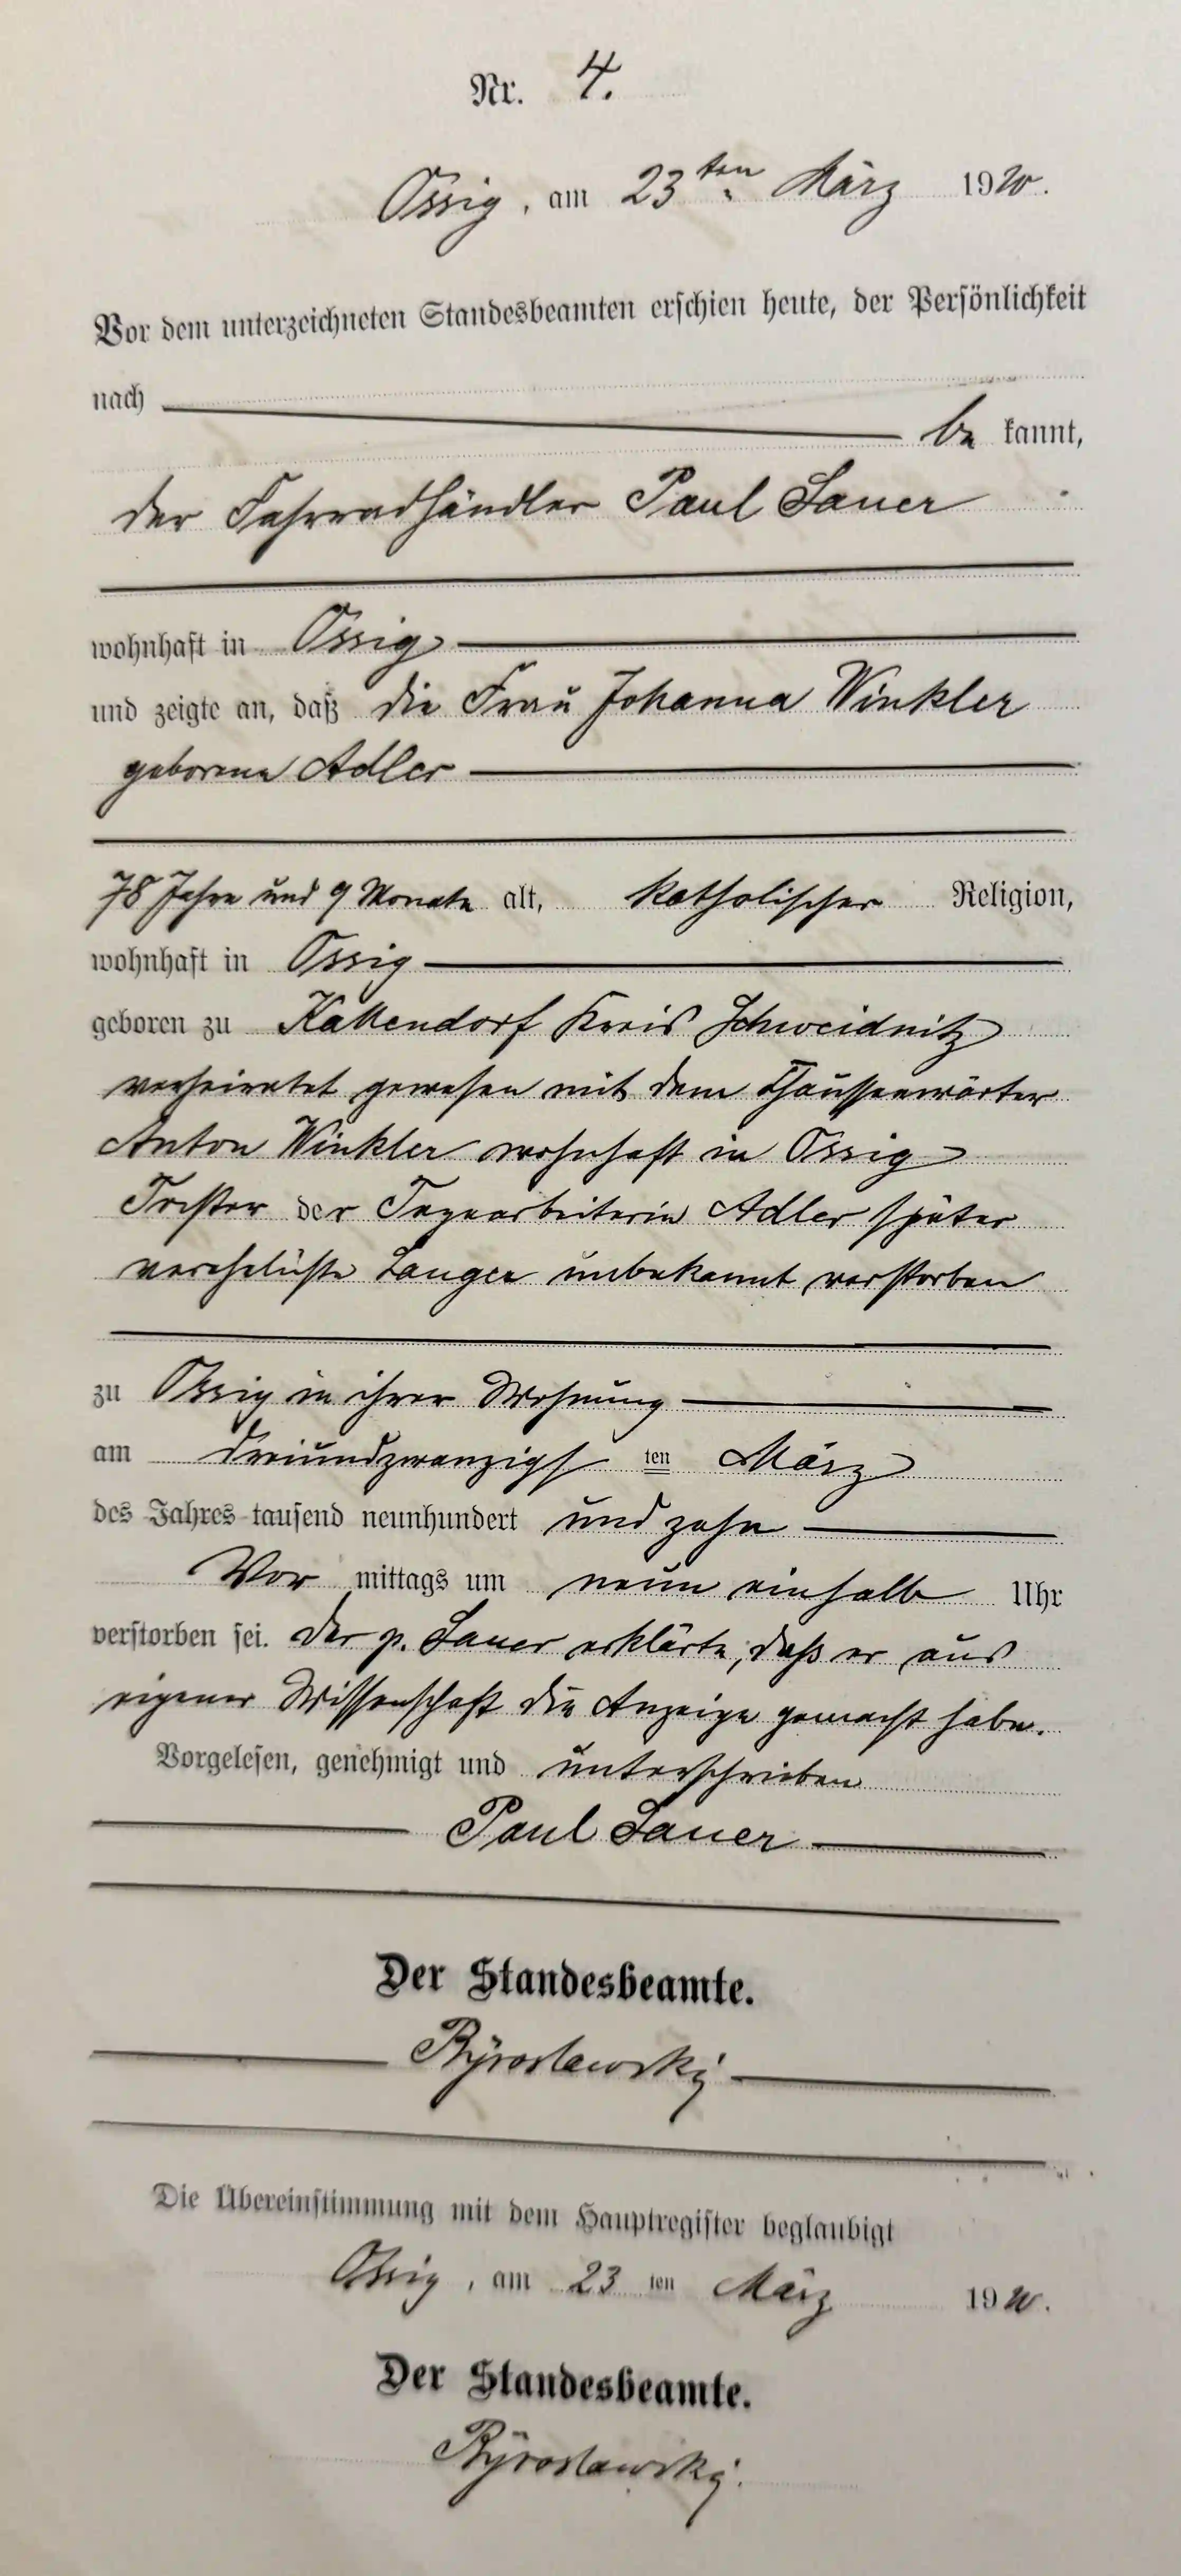 Nr. 4.
Ossig, am 23ten März 1910.
Vor dem unterzeichneten Standesbeamten erschien heute, der Persönlichkeit
nach
be kannt,
der Fahrradhändler Paul Sauer
wohnhaft in Ossig
und zeigte an, daß die Frau Johanna Winkler
geborene Adler
78 Jahre und 9 Monate alt, katholischer Religion,
wohnhaft in Ossig
geboren zu Kallendorf Kreis Schweidnitz
verheiratet gewesen mit dem Chausseewärter
Anton Winkler wohnhaft in Ossig
Tochter der Tagearbeiterin Adler später
verehelichte Langer unbekannt verstorben
zu Ossig in ihrer Wohnung
am dreiundzwanzigs ten März
des Jahres tausend neunhundert und zehn
Vor mittags um neun einhalb Uhr
verstorben sei. Der p. Sauer erklärte, daß er aus
eigener Wissenschaft die Anzeige gemacht habe.
Vorgelesen, genehmigt und unterschrieben
Paul Sauer
Der Standesbeamte.
Die Übereinstimmung mit dem Hauptregister beglaubigt
Ossig, am 23 ten März 1910.
Der Standesbeamte.